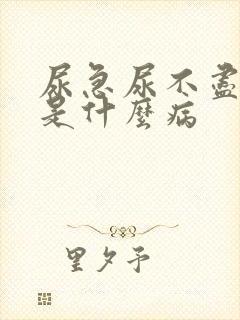 尿急尿不盡
是什麼病
里夕予